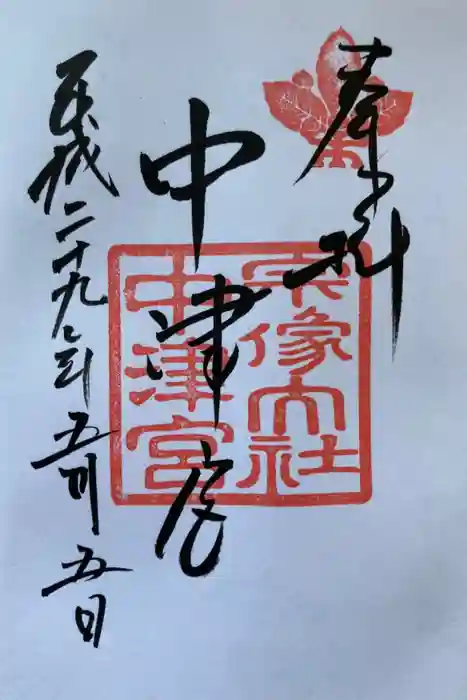 奉拝
中津宮
宗像大社
中津宮
平成二十九年五月五日